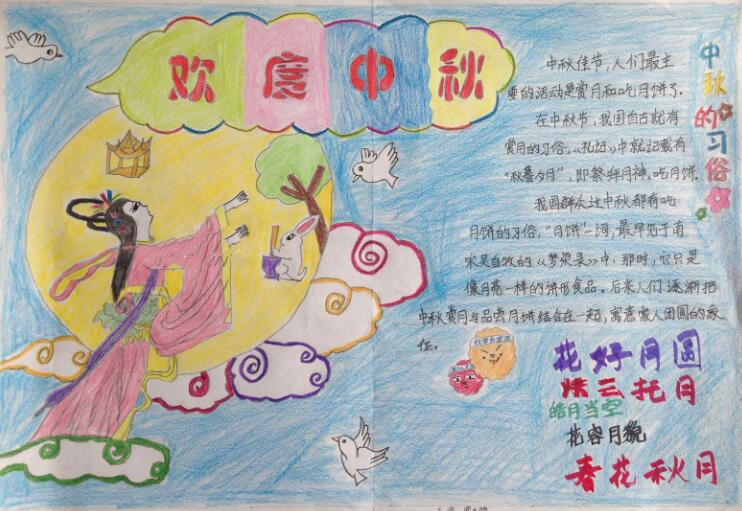 欢度中秋
中秋的习俗
中秋佳节,人们最主
要的活动是赏月和吃月饼了.
在中秋节,我国自古就有
赏月的习俗,《礼记》中就记载有
“秋暮夕月”,即祭拜月神,吃月饼.
我国群众过中秋都有吃
月饼的习俗,“月饼”一词,最早见于南
宋吴自牧的《梦粱录》中,那时,它只是
像月亮一样的饼形食品。后来人们逐渐把
中秋赏月与品尝月饼结合在一起,寓意家人团圆的象
征。
花好月圆
烘云托月
皓月当空
花容月貌
春花秋月